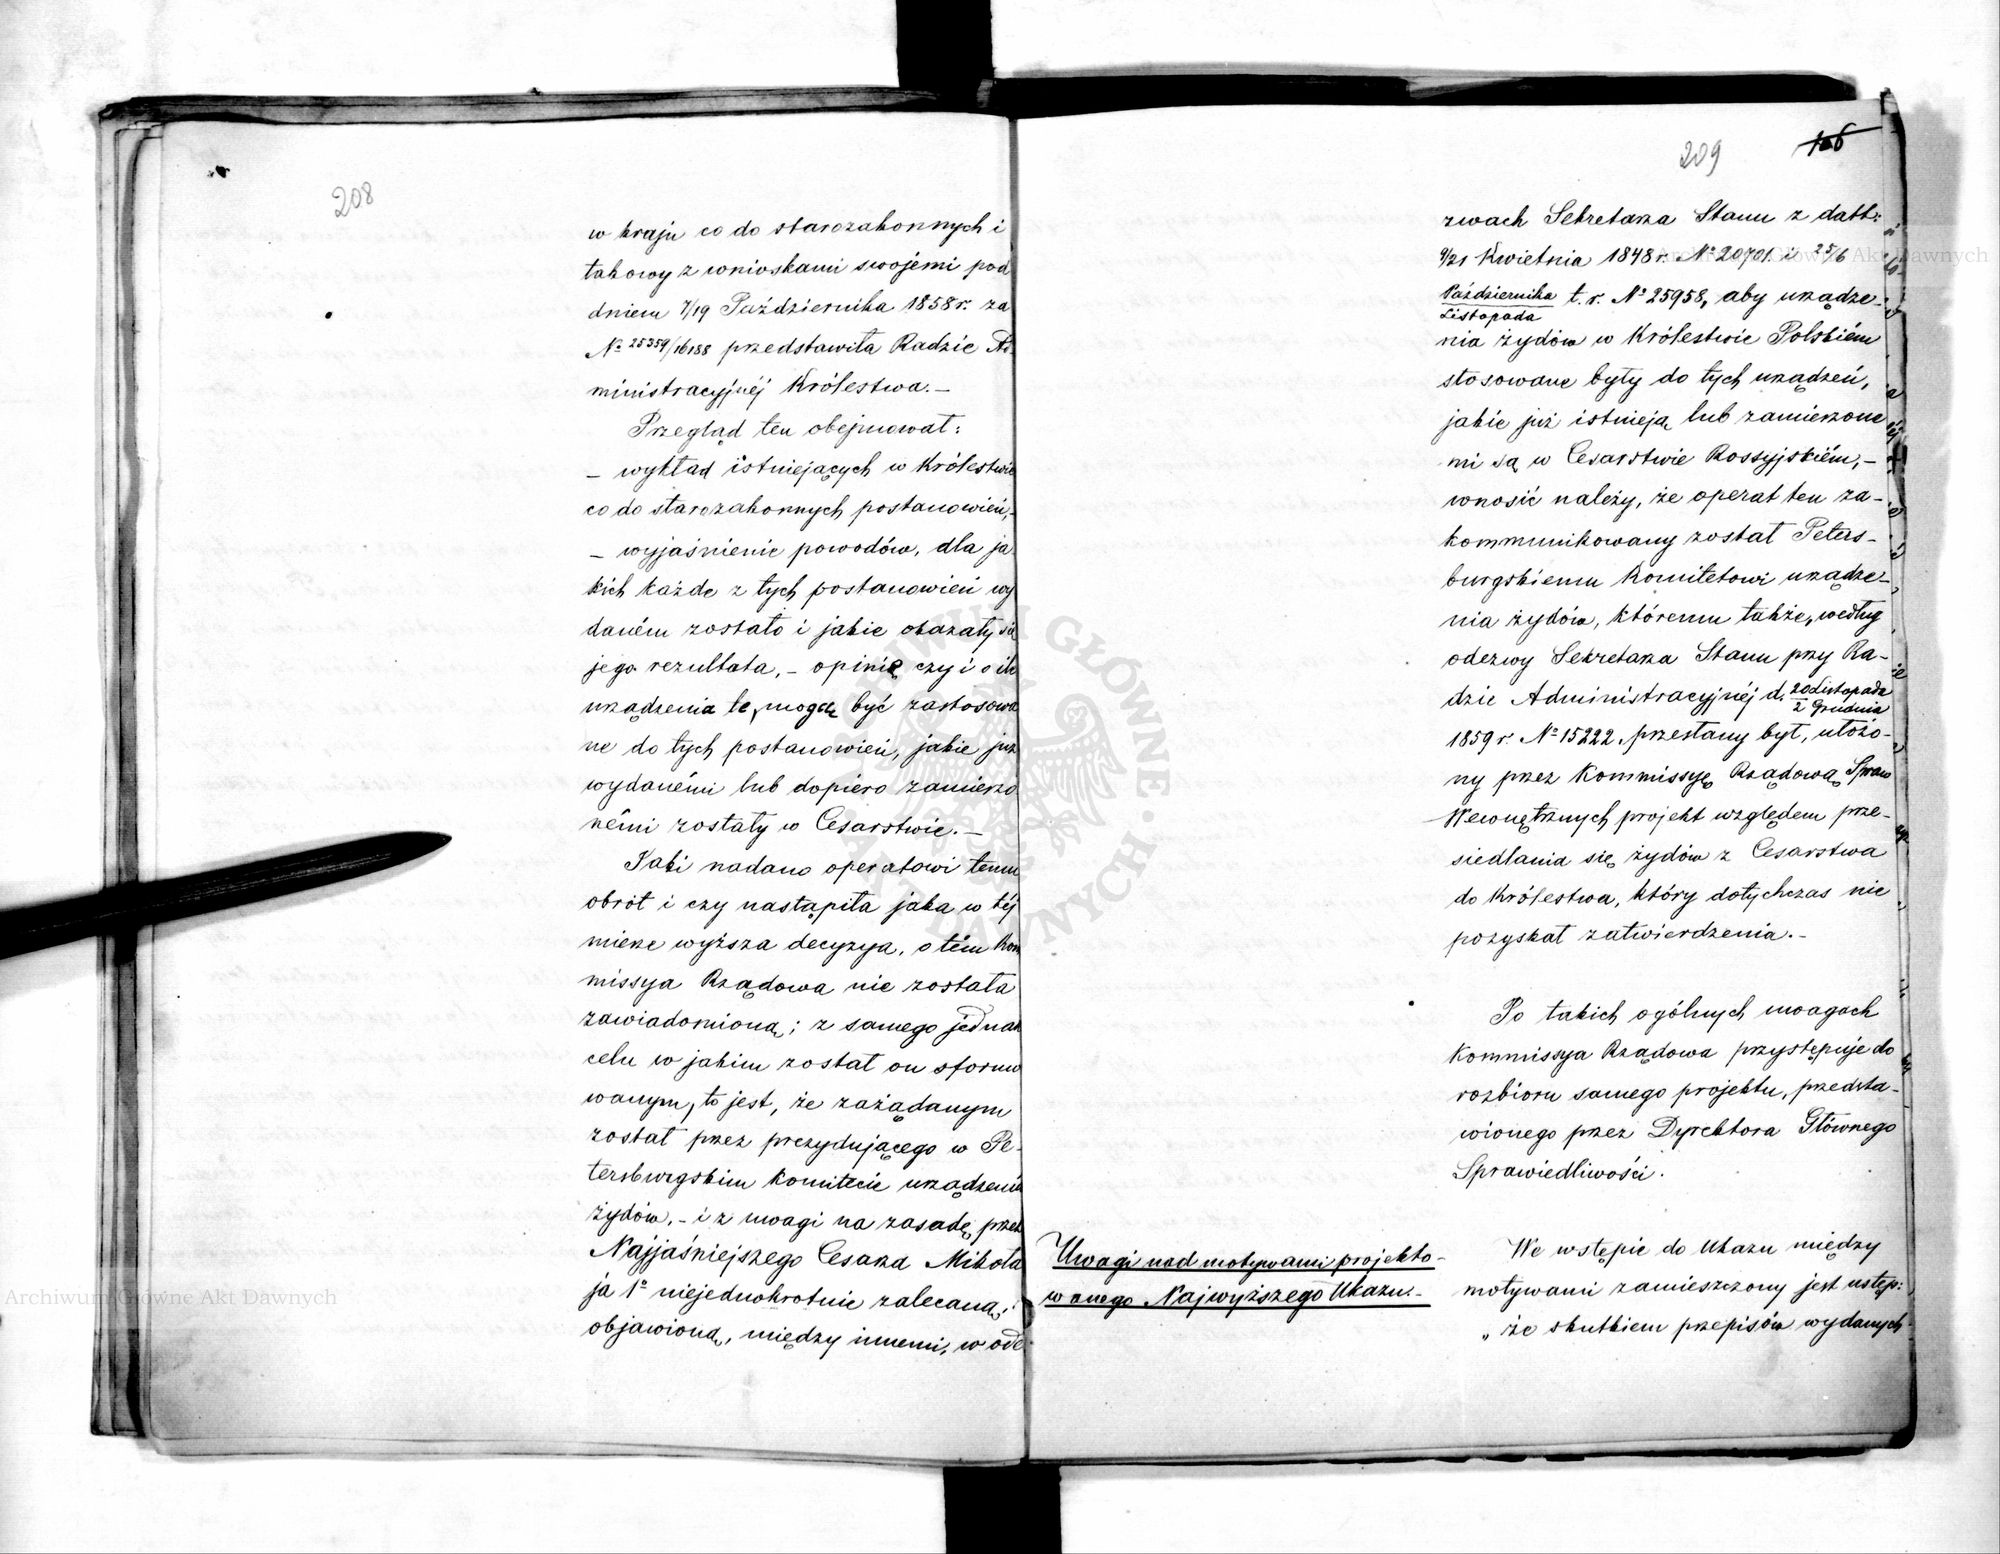 208
w kraju co do starozakonnych i
takowy z wnioskami swojemi pod
dniem 7/19 Października 1858 r. za
№ 25359/16188 przedstawiła Radzie Ad-
ministracyjnéj Królestwa.—
Przegląd ten obejmował:
— wykład istniejących w Królestwie
co do starozakonnych postanowień,—
— wyjaśnienie powodów, dla ja-
kich każde z tych postanowień wy
daném zostało i jakie okazały się
jego rezultata,— opinię czy i o ile
urządzenia te, mogą być zastosowa
ne do tych postanowień, jakie już
wydanémi lub dopiero zamierzo
némi zostały w Cesarstwie.—
Jaki nadano operatowi temu
obrót i czy nastąpiła jaka w téj
mierze wyższa decyzya, o tém Kom
missya Rządowa nie została
zawiadomioną; z samego jednak
celu w jakim został on sformo
wanym, to jest, że zażądanym
został przez prezydującego w Pe-
tersburgskim Komitecie urządzenia
żydów,— i z uwagi na zasadę przez
Najjaśniejszego Cesarza Mikoła
ja 1º niejednokrotnie zalecaną, i
objawioną, między innemi, w ode
209 106
zwach Sekretarza Stanu z datt:
9/21 Kwietnia 1848 r. № 20701. i 25/6
Października/Listopada t. r. № 25958, aby urządze-
nia żydów w Królestwie Polskiém
stosowane były do tych urządzeń,
jakie już istnieją lub zamierzone
mi są w Cesarstwie Rossyjskiém,—
wnosić należy, że operat ten za-
kommunikowany został Peters-
burgskiemu Komitetowi urządze-
nia żydów, któremu także, według
odezwy Sekretarza Stanu przy Ra-
dzie Administracyjnéj d. 20 Listopada/2 Grudnia
1859 r. № 15222, przesłany był, ułożo-
ny przez Kommissyę Rządową Spraw
Wewnętrznych projekt względem prze-
siedlania się żydów z Cesarstwa
do Królestwa, który dotychczas nie
pozyskał zatwierdzenia.—
Po takich ogólnych uwagach
Kommissya Rządowa przystępuje do
rozbioru samego projektu, przedsta-
wionego przez Dyrektora Głównego
Sprawiedliwości.
Uwagi nad motywami projekto-
wanego Najwyższego Ukazu.—
We wstępie do Ukazu między
motywami zamieszczony jest ustęp:
„że skutkiem przepisów wydanych
Archiwum Główne Akt Dawnych
Archiwum Główne Akt Dawnych
ARCHIWUM GŁÓWNE AKT DAWNYCH